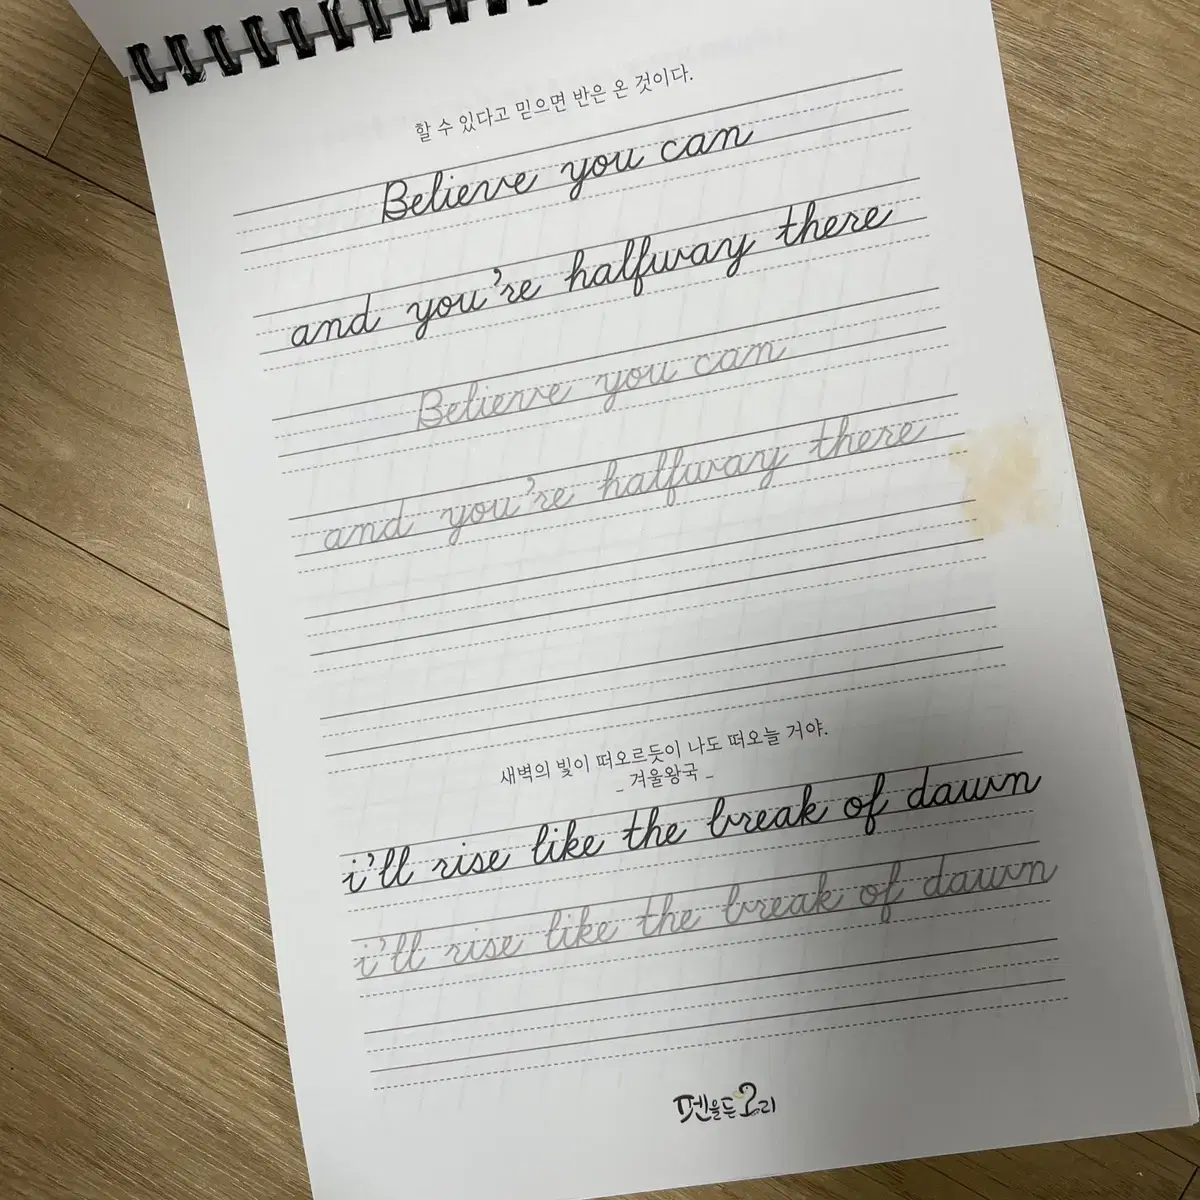 할 수 있다고 믿으면 반은 온 것이다.
Believe you can
and you're halfway there
Believe you can
and you're halfway there
새벽의 빛이 떠오르듯이 나도 떠오늘 거야.
_ 겨울왕국 _
i'll rise like the break of dawn
i'll rise like the break of dawn
펜을든오리